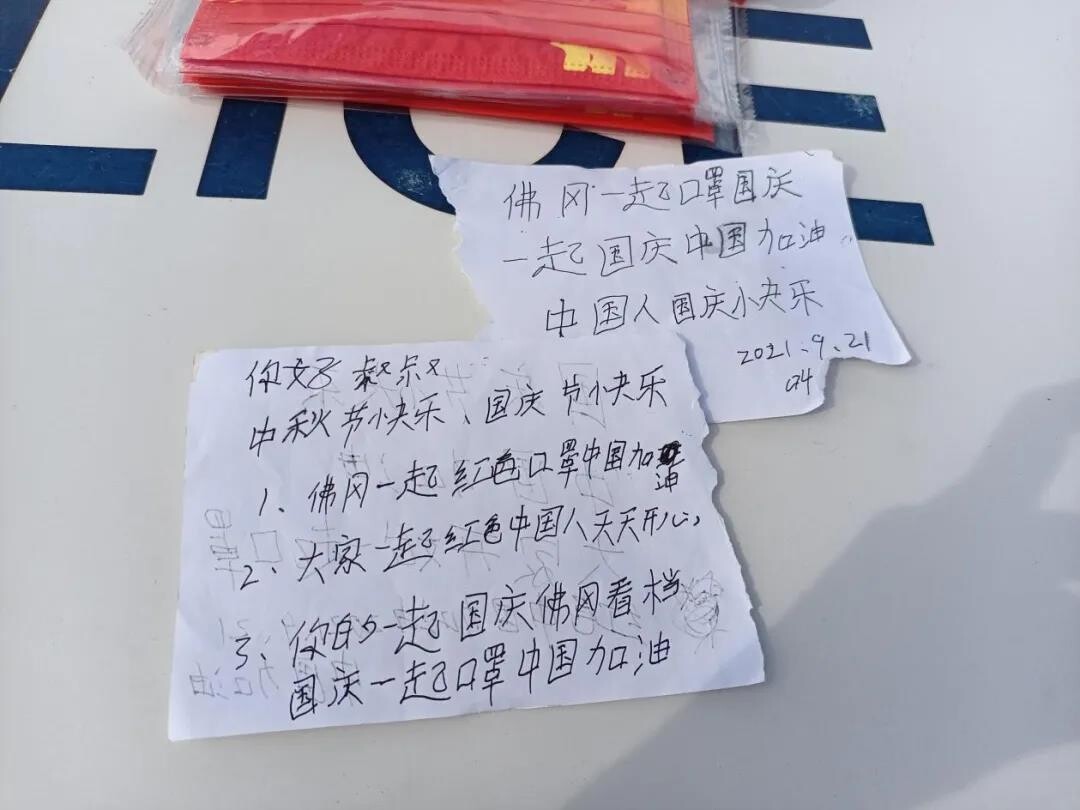 佛冈一起口罩国庆
一起国庆中国加油
中国人国庆小快乐
2021.9.21
你好叔叔
中秋节小快乐、国庆节小快乐
1、佛冈一起红色口罩中国加油
2、大家一起红色中国人天天开心,
3、你的一起国庆佛冈看档
国庆一起口罩中国加油